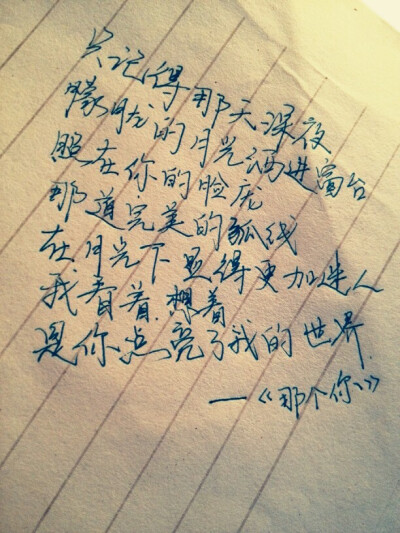 只记得那天深夜
朦胧的月光洒进窗台
照在你的脸庞
那道完美的弧线
在月光下显得更加迷人
我看着.想着
是你点亮了我的世界.
—《那个你》